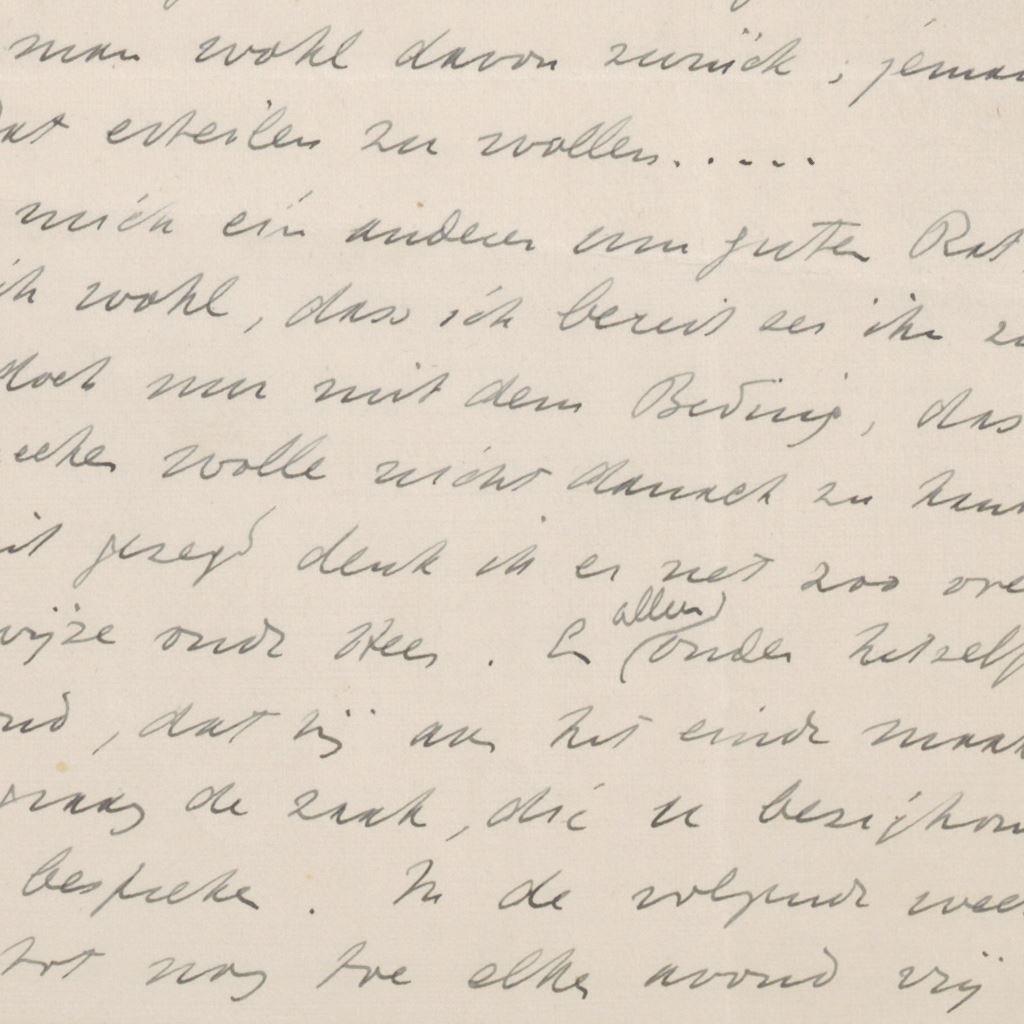 man wohl davon zurück, jeman
Rat erteilen zu wollen.....
mich ein anderer um guten Rat
ich wohl, dass ich bereit sei ihn zu
doch nur mit dem Beding, das
wolle nicht danach zu han
gezegd denk ik er net zoo ove
wijze oude Heer. En (onder hetzelf
allen)
, dat hij aan het einde maak
graag de zaak, die u bezighou
bespreken. In de volgende wee
tot nog toe elken avond vrij